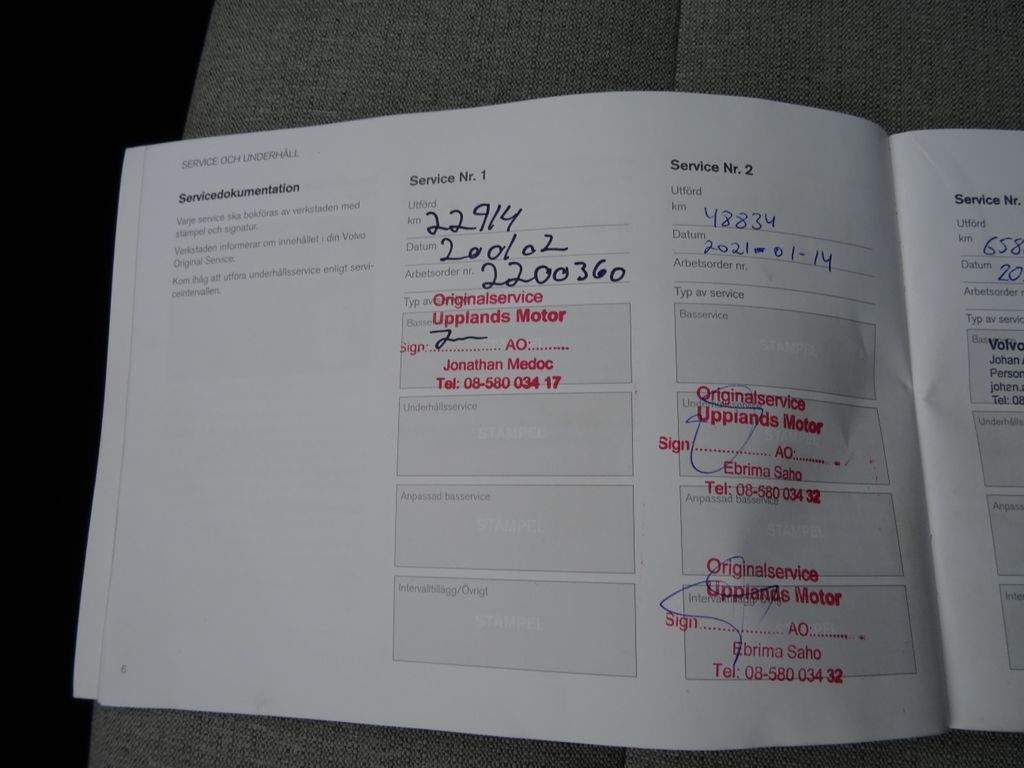 SERVICE OCH UNDERHÅLL
Servicedokumentation
Varje service ska bokföras av verkstaden med
stämpel och signatur.
Verkstaden informerar om innehållet i din Volvo
Original Service.
Kom ihåg att utföra underhållsservice enligt servi-
ceintervallen.
6
Service Nr. 1
Utförd
km 22914
Datum 200102
Arbetsorder nr. 2200360
Typ av
Originalservice
Upplands Motor
Sign:.................. AO:.........
Jonathan Medoc
Tel: 08-580 034 17
Underhållsservice
STÄMPEL
Anpassad basservice
STÄMPEL
Intervalltillägg/Övrigt
STÄMPEL
Service Nr. 2
Utförd
km 48834
Datum 2021-01-14
Arbetsorder nr.
Typ av service
Basservice
STÄMPEL
Underhållsservice
Originalservice
Upplands Motor
Sign.................. AO:.........
Ebrima Saho
Tel: 08-580 034 32
Anpassad basservice
STÄMPEL
Originalservice
Upplands Motor
Intervalltillägg/Övrigt
Sign.................. AO:.........
Ebrima Saho
Tel: 08-580 034 32
Service Nr.
Utförd
km 658
Datum 20
Arbetsorder
Typ av servic
Volvo
Johan
Person
johan.
Tel: 08
Underhålls
Anpass
Inter